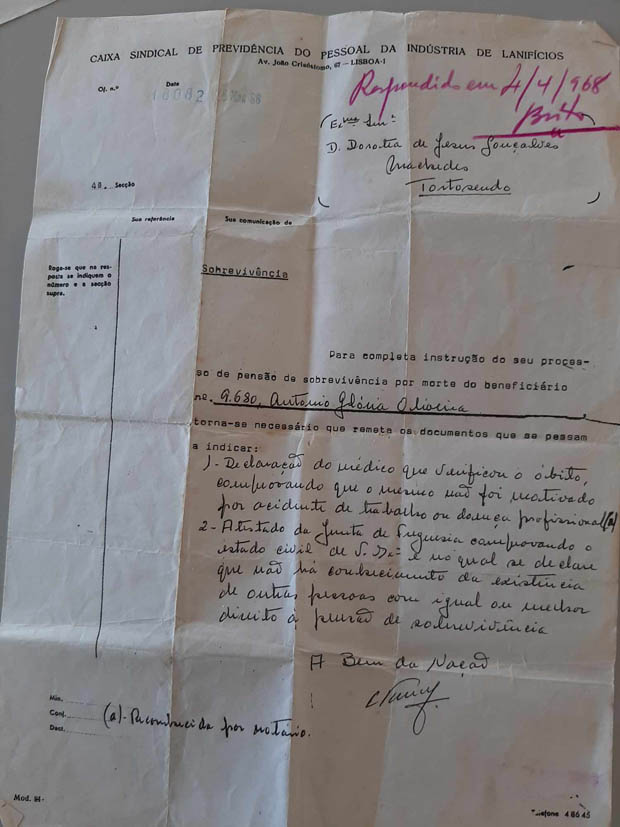 CAIXA SINDICAL DE PREVIDÊNCIA DO PESSOAL DA INDÚSTRIA DE LANIFÍCIOS
Av. João Crisóstomo, 67 — LISBOA-1
Respondido em 4/4/968
Brito
Of. n.º
Data
18082
68
Ex.ma Snr.ª
D. Dorotea de Jesus Gonçalves
Tortosendo
4ª. Secção
Sua referência
Sua comunicação de
Roga-se que na res-
posta se indiquem o
número e a secção
supra.
Sobrevivência
Para completa instrução do seu proces-
so de pensão de sobrevivência por morte do beneficiário
nº. 9.680, António Glória Oliveira
torna-se necessário que remeta os documentos que se passam
a indicar:
1 - Declaração do médico que verificou o óbito,
comprovando que o mesmo não foi motivado
por acidente de trabalho ou doença profissional (a)
2 - Atestado da Junta de Freguesia comprovando o
estado civil de V. Exª e no qual se declare
que não há conhecimento da existência
de outras pessoas com igual ou melhor
direito à pensão de sobrevivência
A Bem da Nação
Min.
Conf.
Dact.
(a) - Reconhecida por notário.
Mod. 84-
Telefone 4 86 45